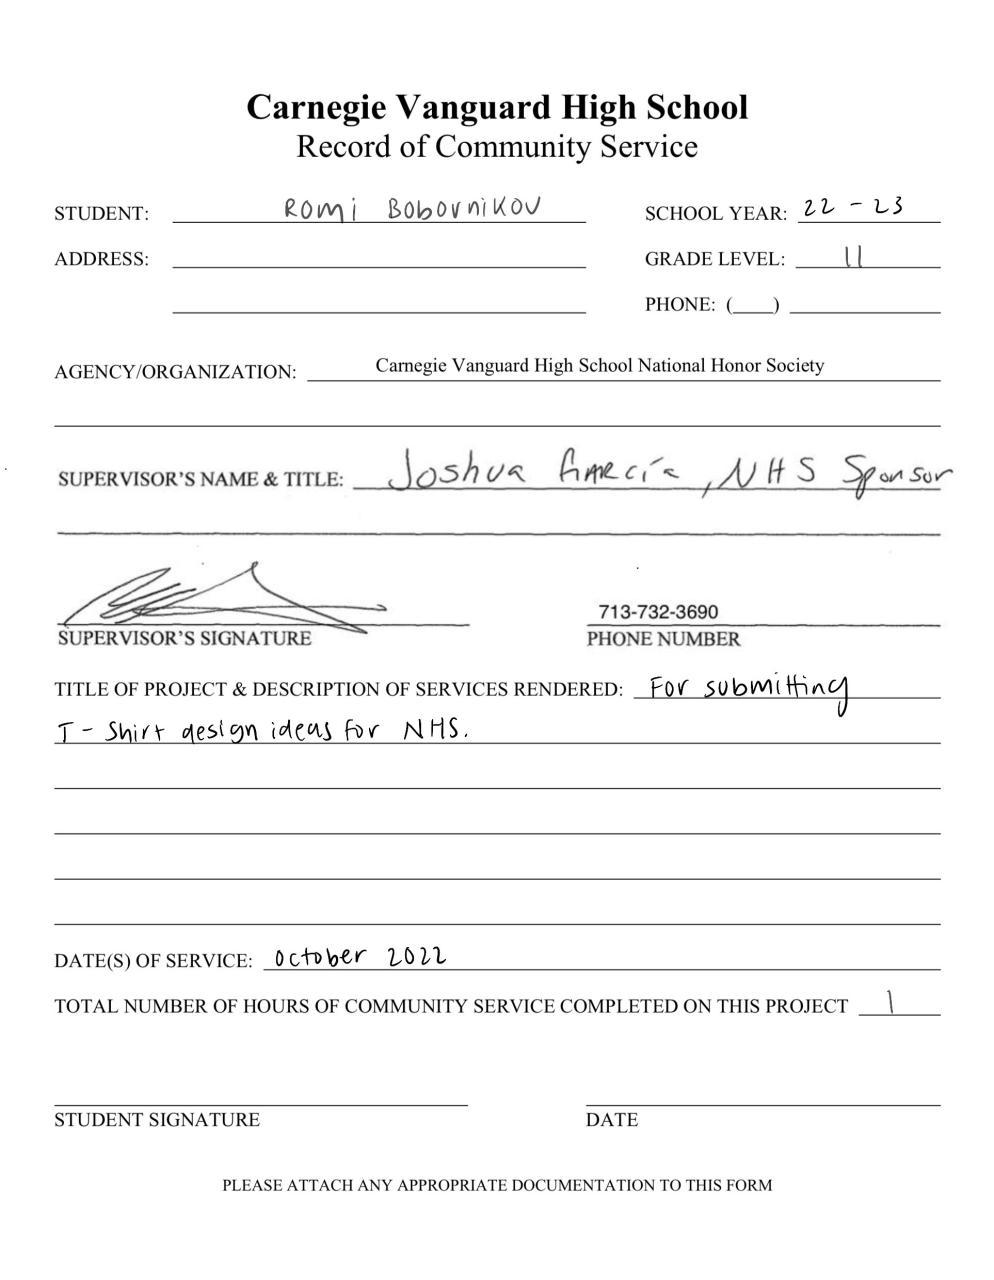 Carnegie Vanguard High School
Record of Community Service
STUDENT: Romi Bobovnikov SCHOOL YEAR: 22 - 23
ADDRESS: GRADE LEVEL: 11
PHONE: (___)
AGENCY/ORGANIZATION: Carnegie Vanguard High School National Honor Society
SUPERVISOR'S NAME & TITLE: Joshua García, NHS Sponsor
713-732-3690
SUPERVISOR'S SIGNATURE PHONE NUMBER
TITLE OF PROJECT & DESCRIPTION OF SERVICES RENDERED: For submitting
T - Shirt design ideas for NHS.
DATE(S) OF SERVICE: October 2022
TOTAL NUMBER OF HOURS OF COMMUNITY SERVICE COMPLETED ON THIS PROJECT 1
STUDENT SIGNATURE DATE
PLEASE ATTACH ANY APPROPRIATE DOCUMENTATION TO THIS FORM